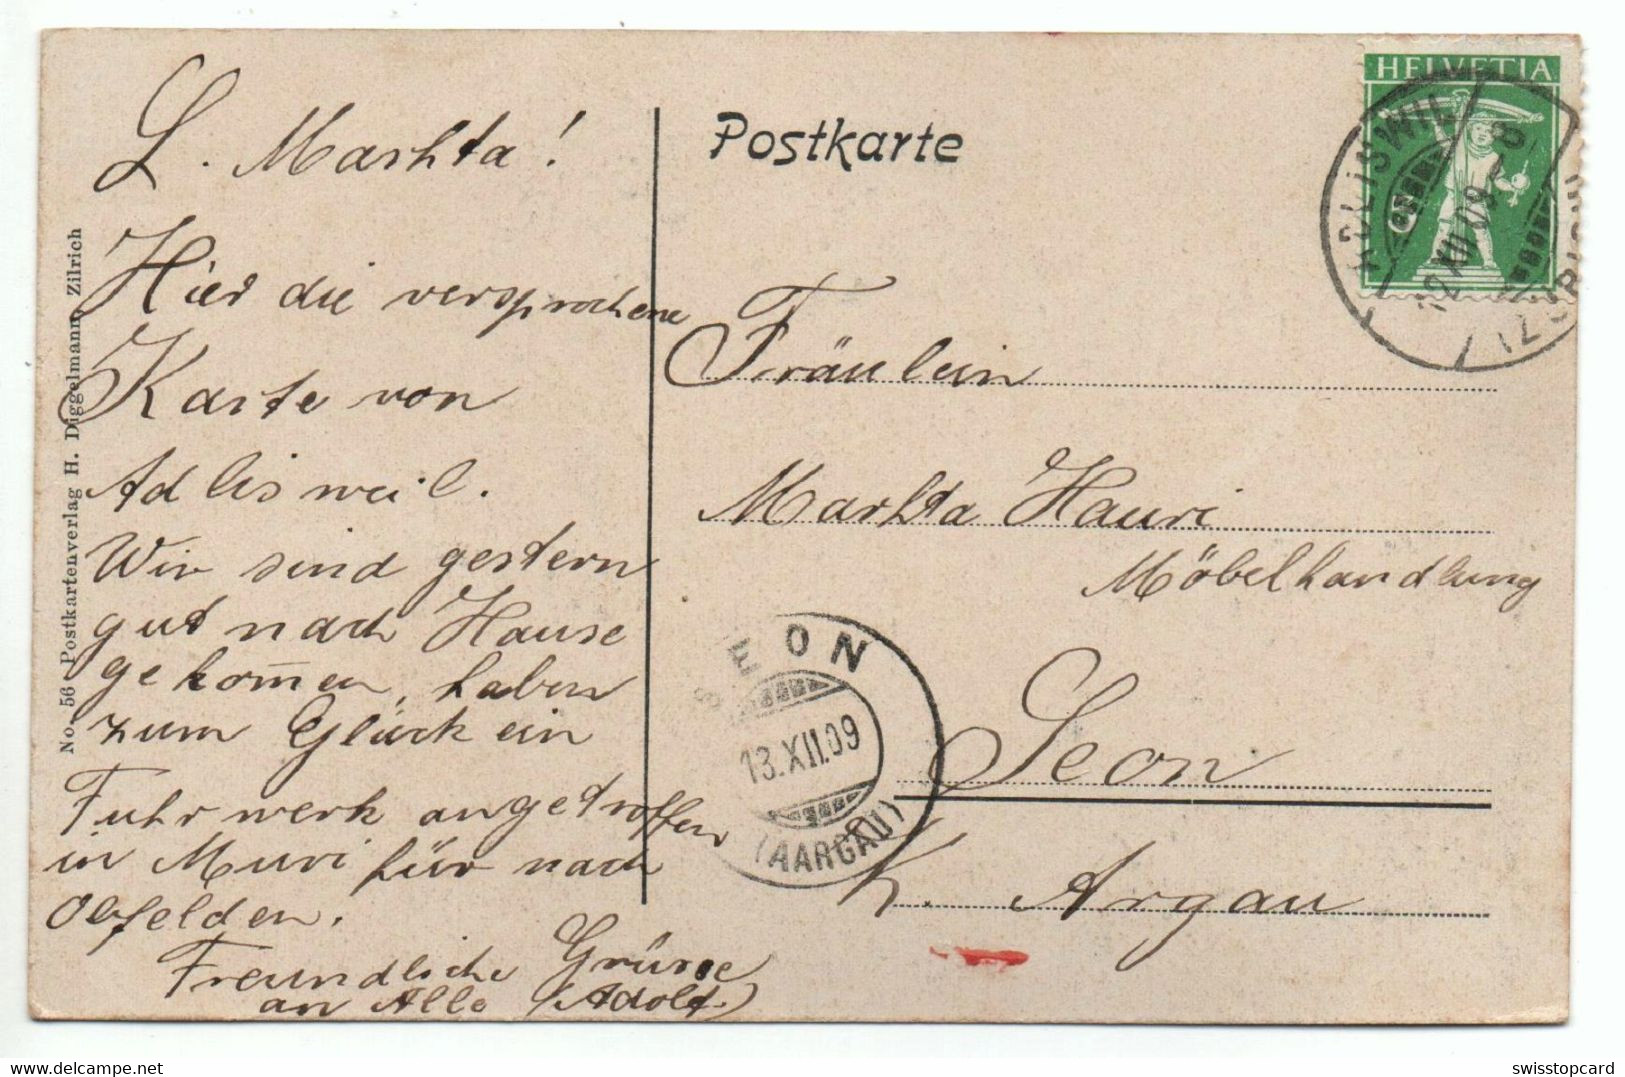 L. Marhta!
Hier die versprochene
Karte von
Adlisweil.
Wir sind gestern
gut nach Hause
gekom̄en, haben
zum Glück ein
Fuhrwerk angetroffen
in Muri für nach
Obfelden.
Freundliche Grüsse
an Alle (Adolf.)
No. 56 Postkartenverlag H. Diggelmann, Zilrich
Postkarte
HELVETIA
ADLISWIL
12.XII.09.-8
(ZÜRICH)
Fräulein
Marhta Hauri
Möbelhandlung
Seon
K. Argau
SEON
13.XII.09
(AARGAU)
Delcampe.net
swisstopcard